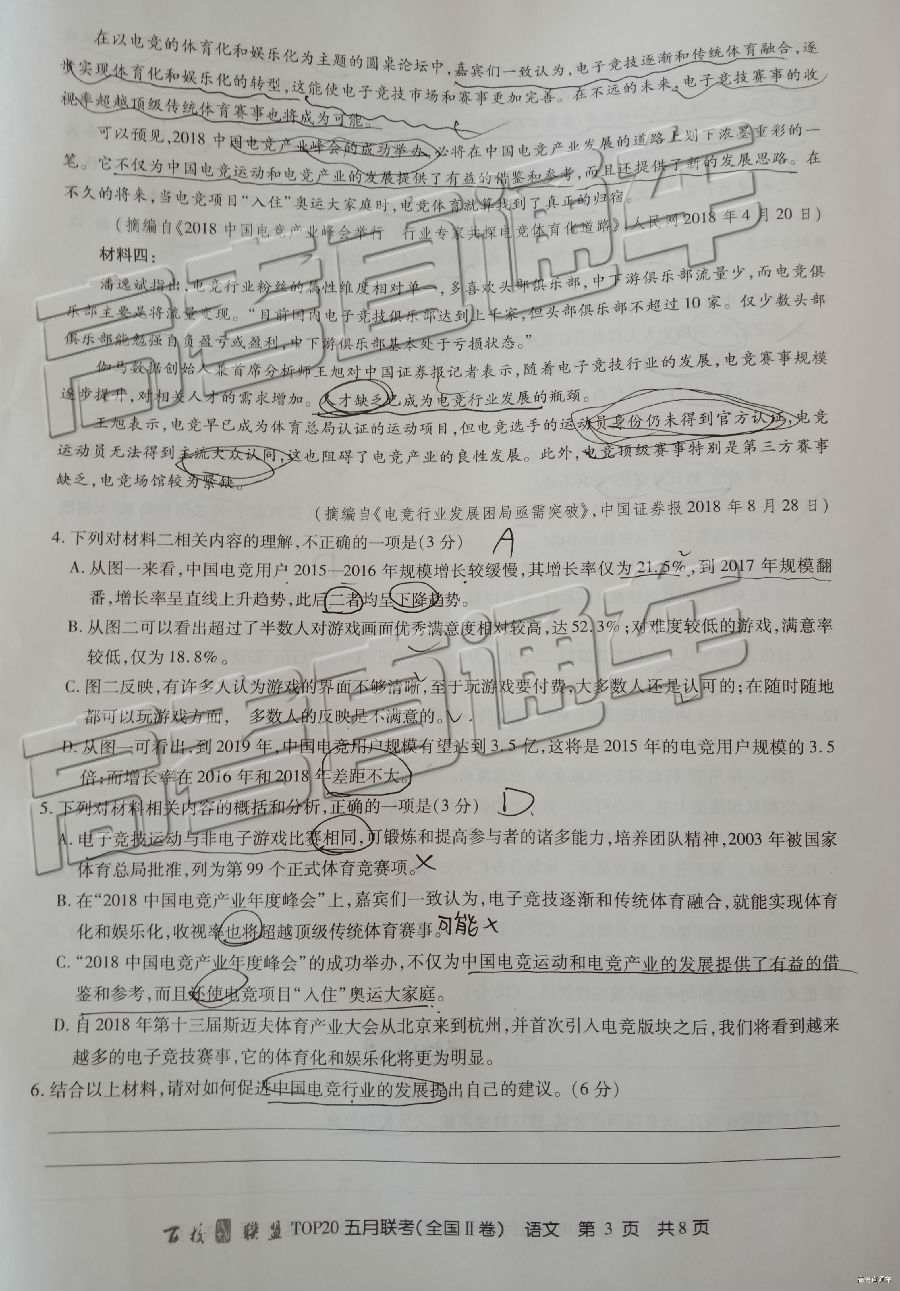 在以电竞的体育化和娱乐化为主题的圆桌论坛中,嘉宾们一致认为,电子竞技逐渐和传统体育融合,逐
步实现体育化和娱乐化的转型,这能使电子竞技市场和赛事更加完善。在不远的未来,电子竞技赛事的收
视率超越顶级传统体育赛事也将成为可能。
可以预见,2018中国电竞产业峰会的成功举办,必将在中国电竞产业发展的道路上划下浓墨重彩的一
笔。它不仅为中国电竞运动和电竞产业的发展提供了有益的借鉴和参考,而且还提供了新的发展思路。在
不久的将来,当电竞项目“入住”奥运大家庭时,电竞体育就算找到了真正的归宿。
(摘编自《2018中国电竞产业峰会举行 行业专家共探电竞体育化道路》,人民网2018年4月20日)
材料四:
潘逸斌指出,电竞行业粉丝的属性维度相对单一,多喜欢头部俱乐部,中下游俱乐部流量少,而电竞俱
乐部主要是将流量变现。“目前国内电子竞技俱乐部达到上千家,但头部俱乐部不超过10家。仅少数头部
俱乐部能勉强自负盈亏或盈利,中下游俱乐部基本处于亏损状态。”
伽马数据创始人兼首席分析师王旭对中国证券报记者表示,随着电子竞技行业的发展,电竞赛事规模
逐步提升,对相关人才的需求增加。人才缺乏已成为电竞行业发展的瓶颈。
王旭表示,电竞早已成为体育总局认证的运动项目,但电竞选手的运动员身份仍未得到官方认证,电竞
运动员无法得到主流大众认同,这也阻碍了电竞产业的良性发展。此外,电竞顶级赛事特别是第三方赛事
缺乏,电竞场馆较为紧缺。
(摘编自《电竞行业发展困局亟需突破》,中国证券报2018年8月28日)
4.下列对材料二相关内容的理解,不正确的一项是(3分) A
A.从图一来看,中国电竞用户2015—2016年规模增长较缓慢,其增长率仅为21.5%,到2017年规模翻
番,增长率呈直线上升趋势,此后二者均呈下降趋势。
B.从图二可以看出超过了半数人对游戏画面优秀满意度相对较高,达52.3%;对难度较低的游戏,满意率
较低,仅为18.8%。
C.图二反映,有许多人认为游戏的界面不够清晰,至于玩游戏要付费,大多数人还是认可的;在随时随地
都可以玩游戏方面, 多数人的反映是不满意的。
D.从图一可看出,到2019年,中国电竞用户规模有望达到3.5亿,这将是2015年的电竞用户规模的3.5
倍;而增长率在2016年和2018年差距不大。
5.下列对材料相关内容的概括和分析,正确的一项是(3分) D
A.电子竞技运动与非电子游戏比赛相同,可锻炼和提高参与者的诸多能力,培养团队精神,2003年被国家
体育总局批准,列为第99个正式体育竞赛项。×
B.在“2018中国电竞产业年度峰会”上,嘉宾们一致认为,电子竞技逐渐和传统体育融合,就能实现体育
化和娱乐化,收视率也将超越顶级传统体育赛事。可能×
C.“2018中国电竞产业年度峰会”的成功举办,不仅为中国电竞运动和电竞产业的发展提供了有益的借
鉴和参考,而且还使电竞项目“入住”奥运大家庭。
D.自2018年第十三届斯迈夫体育产业大会从北京来到杭州,并首次引入电竞版块之后,我们将看到越来
越多的电子竞技赛事,它的体育化和娱乐化将更为明显。
6.结合以上材料,请对如何促进中国电竞行业的发展提出自己的建议。(6分)
百校 联盟 TOP20五月联考(全国Ⅱ卷) 语文 第3页 共8页
高考直通车
高考直通车